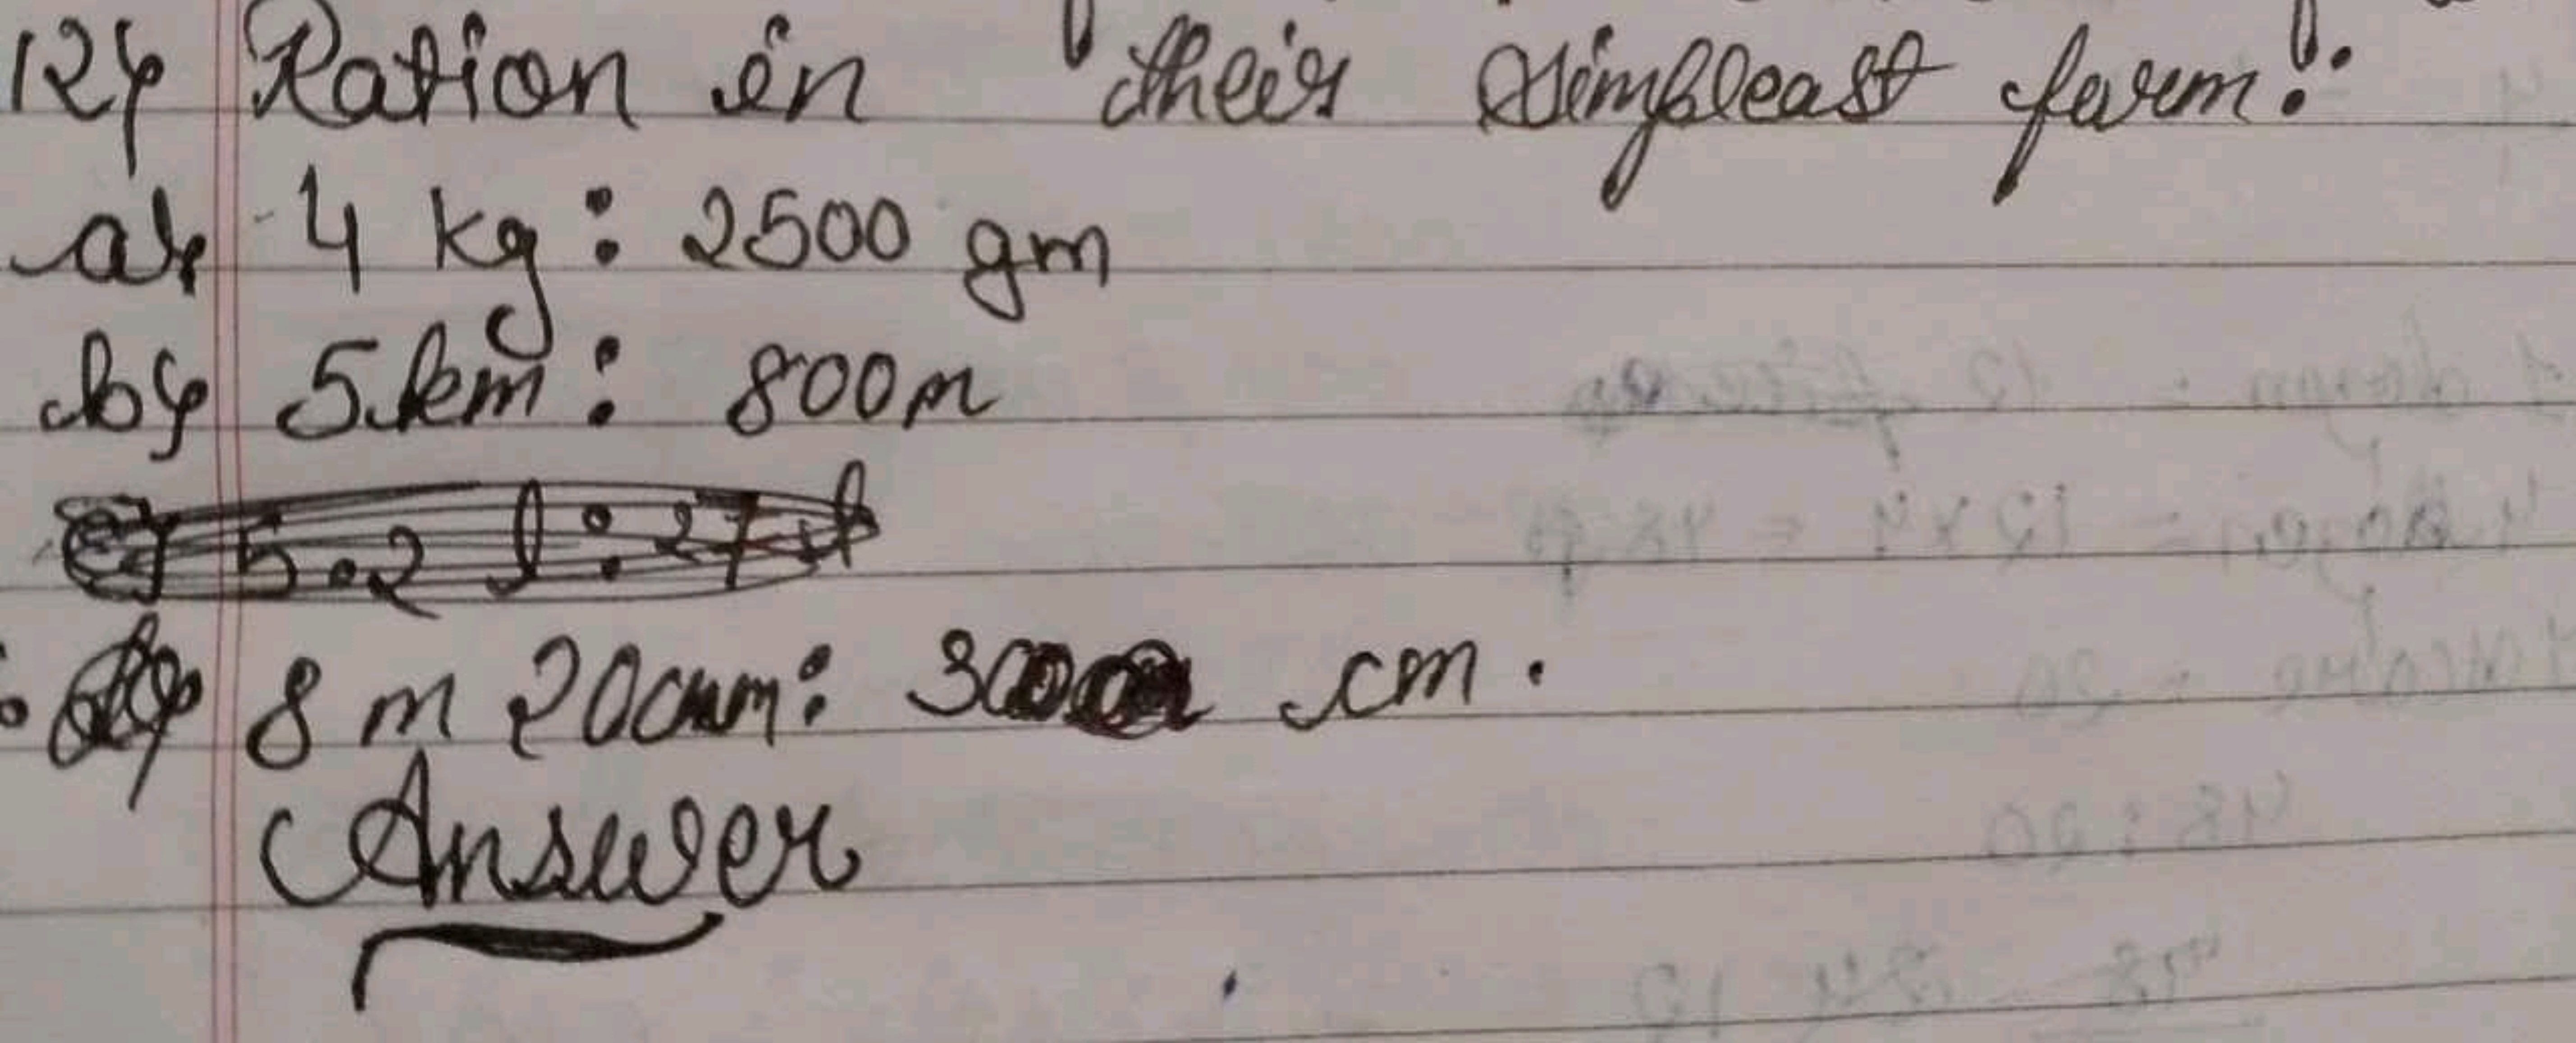 12) Ration in their simpleast form!:
a) 4 kg : 2500 gm
b) 5 km : 800m
5.2 l : 27
8 m 20cm : 30 cm .
Answer